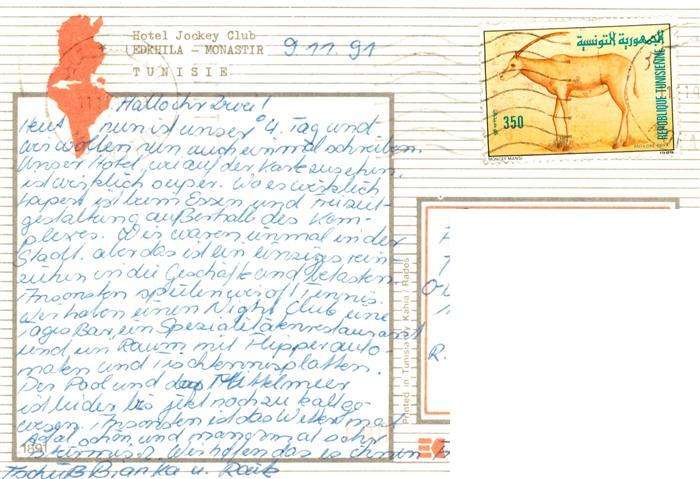 Hotel Jockey Club
EDKHILA - MONASTIR
9.11.91
TUNISIE
Hallo ihr Zwei!
Heut nun ist unser 4. Tag und
wir wollen nun auch einmal schreiben.
Unser Hotel, wie auf der Karte zu sehen,
ist wirklich super. Wo es wirklich
hapert ist beim Essen und Freizeit-
gestaltung außerhalb des Kom-
plexes. Wir waren einmal in der
Stadt. aber das ist ein einziges rein-
ziehen in die Geschäfte und betasten
Ansonsten spielen wir oft Tennis.
Wir haben einen Night Club, eine
Tages Bar, ein Spezialitätenrestaurant
und ein Raum mit Flipperauto-
maten und Tischtennisplatten.
Der Pool und das Mittelmeer
ist leider bis jetzt noch zu kalt ge-
wesen. Ansonsten ist das Wetter mal
schön und manchmal sehr
stürmisch. Wir hoffen das
Tschüß Bianka u.
الجمهورية التونسية
REPUBLIQUE TUNISIENNE
350
Printed in Tunisia by Kahia - Rades
R.